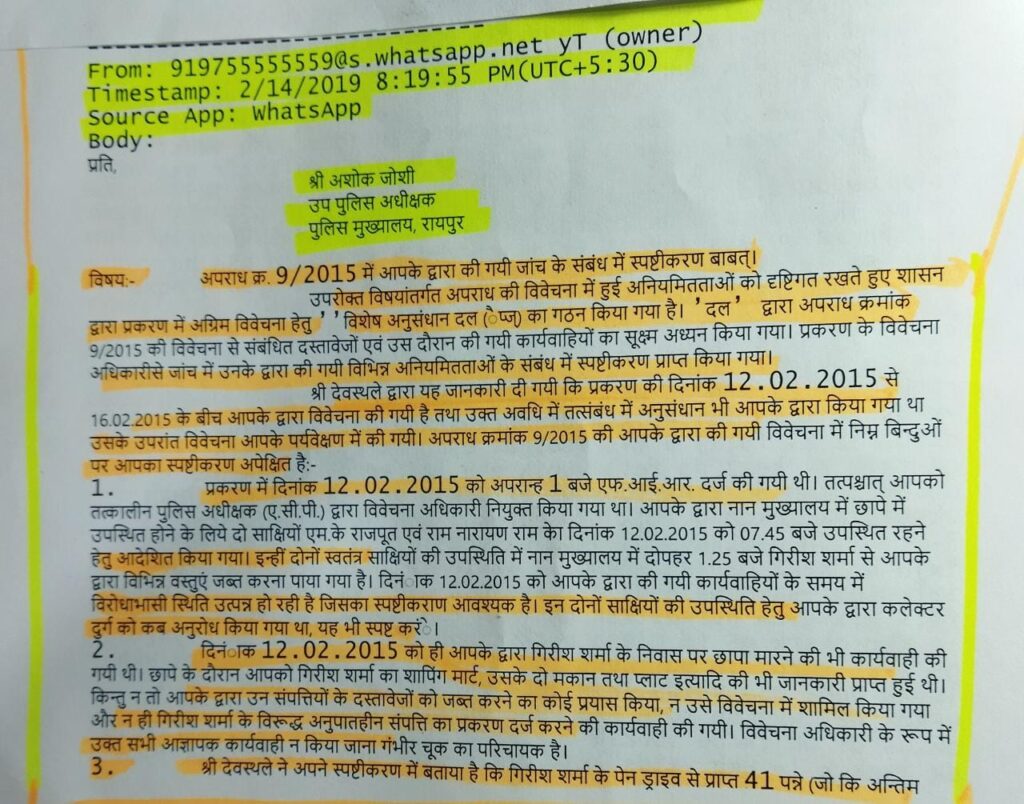 --------------------------------
From: 919755555559@s.whatsapp.net yT (owner)
Timestamp: 2/14/2019 8:19:55 PM(UTC+5:30)
Source App: WhatsApp
Body:
प्रति,
श्री अशोक जोशी
उप पुलिस अधीक्षक
पुलिस मुख्यालय, रायपुर
विषय:- अपराध क्र. 9/2015 में आपके द्वारा की गयी जांच के संबंध में स्पष्टीकरण बाबत्।
उपरोक्त विषयांतर्गत अपराध की विवेचना में हुई अनियमितताओं को दृष्टिगत रखते हुए शासन
द्वारा प्रकरण में अग्रिम विवेचना हेतु ''विशेष अनुसंधान दल (ेप्ज्) का गठन किया गया है। 'दल' द्वारा अपराध क्रमांक
9/2015 की विवेचना से संबंधित दस्तावेजों एवं उस दौरान की गयी कार्यवाहियों का सूक्ष्म अध्यन किया गया। प्रकरण के विवेचना
अधिकारीसे जांच में उनके द्वारा की गयी विभिन्न अनियमितताओं के संबंध में स्पष्टीकरण प्राप्त किया गया।
श्री देवस्थले द्वारा यह जानकारी दी गयी कि प्रकरण की दिनांक 12.02.2015 से
16.02.2015 के बीच आपके द्वारा विवेचना की गयी है तथा उक्त अवधि में तत्संबंध में अनुसंधान भी आपके द्वारा किया गया था
उसके उपरांत विवेचना आपके पर्यवेक्षण में की गयी। अपराध क्रमांक 9/2015 की आपके द्वारा की गयी विवेचना में निम्न बिन्दुओं
पर आपका स्पष्टीकरण अपेक्षित है:-
1. प्रकरण में दिनांक 12.02.2015 को अपरान्ह 1 बजे एफ.आई.आर. दर्ज की गयी थी। तत्पश्चात् आपको
तत्कालीन पुलिस अधीक्षक (ए.सी.पी.) द्वारा विवेचना अधिकारी नियुक्त किया गया था। आपके द्वारा नान मुख्यालय में छापे में
उपस्थित होने के लिये दो साक्षियों एम.के. राजपूत एवं राम नारायण राम केा दिनांक 12.02.2015 को 07.45 बजे उपस्थित रहने
हेतु आदेशित किया गया। इन्हीं दोनों स्वतंत्र साक्षियों की उपस्थिति में नान मुख्यालय में दोपहर 1.25 बजे गिरीश शर्मा से आपके
द्वारा विभिन्न वस्तुएं जब्त करना पाया गया है। दिनंाक 12.02.2015 को आपके द्वारा की गयी कार्यवाहियों के समय में
विरोधाभासी स्थिति उत्पन्न हो रही है जिसका स्पष्टीकराण आवश्यक है। इन दोनों साक्षियों की उपस्थिति हेतु आपके द्वारा कलेक्टर
दुर्ग को कब अनुरोध किया गया था, यह भी स्पष्ट करंे।
2. दिनंाक 12.02.2015 को ही आपके द्वारा गिरीश शर्मा के निवास पर छापा मारने की भी कार्यवाही की
गयी थी। छापे के दौरान आपको गिरीश शर्मा का शापिंग मार्ट, उसके दो मकान तथा प्लाट इत्यादि की भी जानकारी प्राप्त हुई थी।
किन्तु न तो आपके द्वारा उन संपत्तियों के दस्तावेजों को जब्त करने का कोई प्रयास किया, न उसे विवेचना में शामिल किया गया
और न ही गिरीश शर्मा के विरूद्ध अनुपातहीन संपत्ति का प्रकरण दर्ज करने की कार्यवाही की गयी। विवेचना अधिकारी के रूप में
उक्त सभी आज्ञापक कार्यवाही न किया जाना गंभीर चूक का परिचायक है।
3. श्री देवस्थले ने अपने स्पष्टीकरण में बताया है कि गिरीश शर्मा के पेन ड्राइव से प्राप्त 41 पन्ने (जो कि अन्तिम